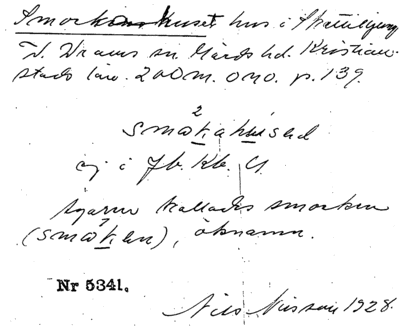 Smorkhuset hus i Skättilljung
V. Vrams sn Gärds hd. Kristian-
stads län. 200 m. ono. p. 139.
2
småkahused
ej i Jb. Kb. U.
Ägaren kallades smorken
(småken), öknamn.
Nr 5341.
Nils Nilsson 1928.